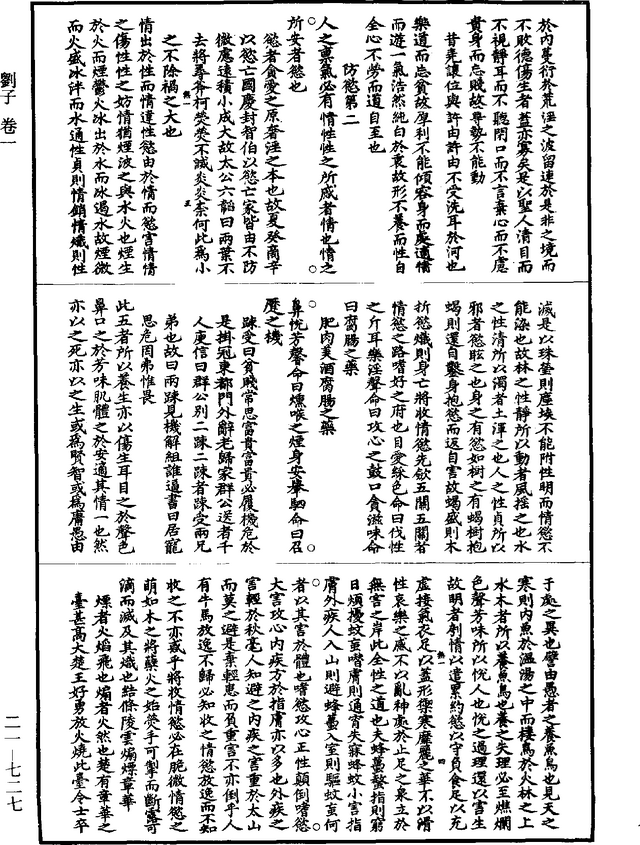 於內蔓衍於荒淫之波留連於是非之境而
不敗德傷生者蓋亦寡矣是以聖人清目而
不視靜耳而不聽閉口而不言棄心而不慮
貴身而忘賤故尊勢不能動
昔堯讓位與許由許由不受洗耳於河也
樂道而忘貧故厚利不能傾容身而處適情
而遊一氣浩然純白於衷故形不養而性自
全心不勞而道自至也
防慾第二
人之稟氣必有情性性之所感者情也情之
所安者慾也
慾者貪愛之原奢淫之本也故夏癸商辛
以慾亡國慶封智伯以慾亡家皆由不防
微慮遠積小成大故太公六韜曰兩葉不
去將尋斧柯熒熒不滅炎炎柰何此爲小
之不除禍之大也
情出於性而情違性慾由於情而慾害情情
之傷性性之妨情猶煙波之與水火也煙生
於火而煙鬱火冰出於水而冰遏水故煙微
而火盛冰泮而水通性貞則情銷情熾則性
滅是以珠瑩則塵埃不能附性明而情慾不
能染也故林之性靜所以動者風搖之也水
之性清所以濁者土渾之也人之性貞所以
邪者慾眩之也身之有慾如樹之有蝎樹抱
蝎則還自鑿身抱慾而返自害故蝎盛則木
折慾熾則身亡將收情慾先歛五關五關者
情慾之路嗜好之府也目愛綵色命曰伐性
之斤耳樂淫聲命曰攻心之鼓口貪滋味命
曰腐腸之藥
肥肉美酒腐腸之藥
鼻悅芳馨命曰燻喉之煙身安轝駟命曰召
蹷之機
疎受曰貧賤常思富貴富貴必履機危於
是掛冠東都門外辭老歸家群公送者千
人更信曰群公別二疎二疎者疎受兩兄
弟也故曰兩疎見機解組誰逼書曰居寵
思危罔弗惟畏
此五者所以養生亦以傷生耳目之於聲色
鼻口之於芳味肌體之於安適其情一也然
亦以之死亦以之生或爲賢智或爲庸愚由
于處之異也譬由愚者之養魚鳥也見天之
寒則內魚於溫湯之中而棲鳥於火林之上
水木者所以養魚鳥也養之失理必至燋爛
色聲芳味所以悅人也悅之過理還以害生
故明者刳情以遣累約慾以守貞食足以充
虛接氣衣足以蓋形禦寒靡麗之華不以滑
性哀樂之感不以亂神處於止足之泉立於
無害之岸此全性之道也夫蜂蠆螫指則窮
日煩擾蚊蝱噆膚則通宵失寐蜂蚊小害指
膚外疾人入山則避蜂蠆入室則驅蚊蝱何
者以其害於體也嗜慾攻心正性顛倒嗜慾
大害攻心內疾方於指膚亦以多也外疾之
害輕於秋毫人知避之內疾之害重於太山
而莫之避是棄輕患而負重害不亦倒乎人
有牛馬放逸不歸必知收之情慾放逸而不知
收之不亦惑乎將收情慾必在脆微情慾之
萌如木之將蘖火之始熒手可掣而斷露可
滴而滅及其熾也結條陵雲煽熛章華
熛者火焰飛也煽者火然也楚有章華之
臺甚高大楚王好勇放火燒此臺令士卒
劉子 卷一
二一—七二七